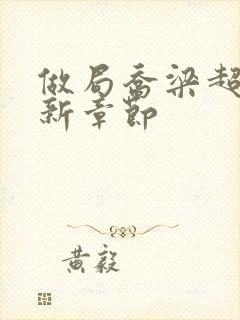 做局乔梁超
新章节
黄毅